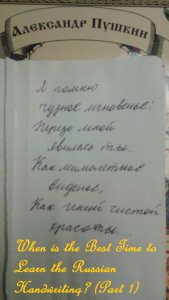 Александр Пушкин
Я помню
чудное мгновенье:
Передо мной
явилась ты,
Как мимолетное
виденье,
Как гений чистой
красоты...
When is the Best Time to
Learn the Russian
Handwriting? (Part 1)